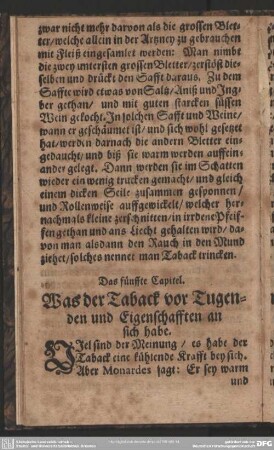 zwar nicht mehr darvon als die grossen Blet-
ter/welche allein in der Artzney zu gebrauchen
mit Fleiß eingesamlet werden: Man nimbt
die zwey untersten grossen Bletter/zerstößt die-
selben und drückt den Safft daraus. Zu dem
Saffte wird etwas von Saltz/Aniß und Ing-
ber gethan/ und mit guten starcken süssen
Wein gekocht. In solchen Safft und Weine/
wann er geschäumet ist/und sich wohl gesetzet
hat/werden darnach die andern Bletter ein-
gedaucht/und biß sie warm werden auffein-
ander gelegt. Dann werden sie im Schatten
wieder ein wenig trucken gemacht/und gleich
einem dicken Seile zusammen gesponnen/
und Rollenweise auffgewickelt/welcher her-
nachmals kleine zerschnitten/in irrdene Pfeif-
fen gethan und ans Liecht gehalten wird/da-
von man alsdann den Rauch in den Mund
ziehet/solches nennet man Taback trincken.
Das fünffte Capitel.
Was der Taback vor Tugen-
den und Eigenschafften an
sich habe.
Viel sind der Meinung/ es habe der
Taback eine kühlende Krafft bey sich.
Aber Monardes sagt: Er sey warm
und